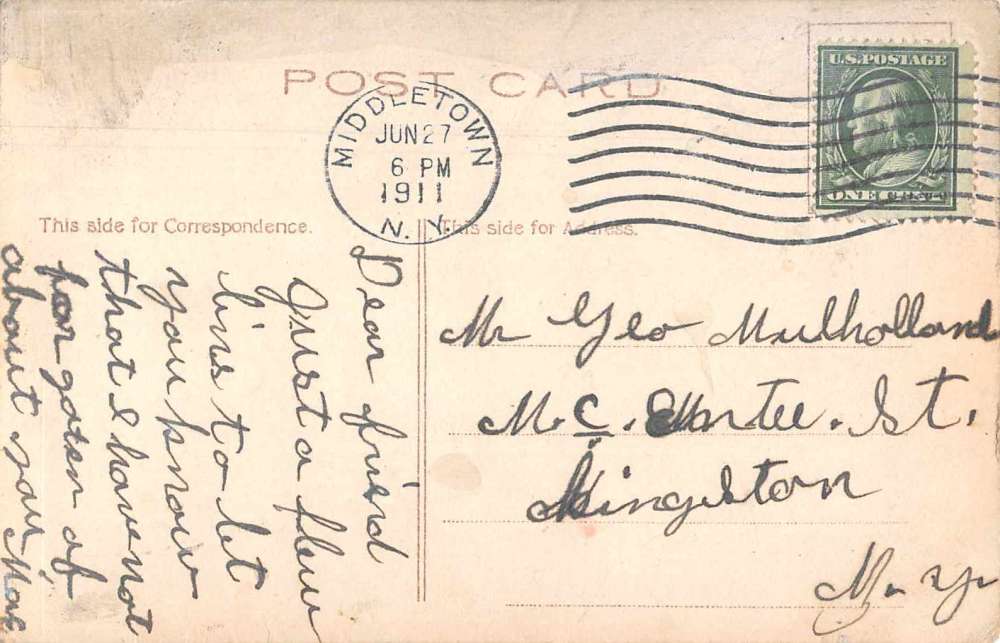 POST CARD
U.S. POSTAGE
ONE CENT
MIDDLETOWN
JUN 27
6 PM
1911
N. Y.
This side for Correspondence.
This side for Address.
Dear friend
Just a few
lins to let
you know
that I have not
for goten of
about you
Mr Geo Mulholland
M.C. Entee. St.
Kingston
N. Y.